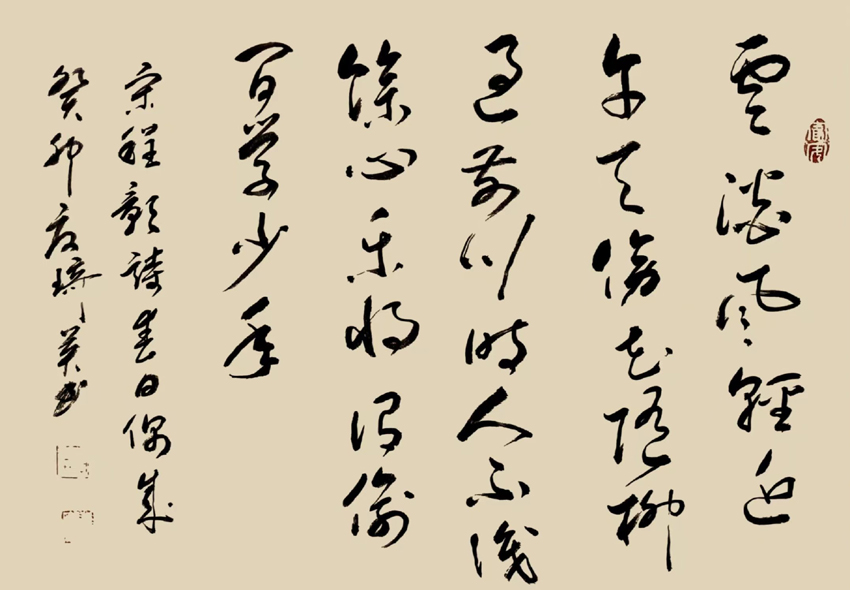 雲淡風輕近
午天傍花隨柳
過前川時人不識
餘心樂將謂偷
閒學少年
宋程顥詩春日偶成
癸卯夏琦英书